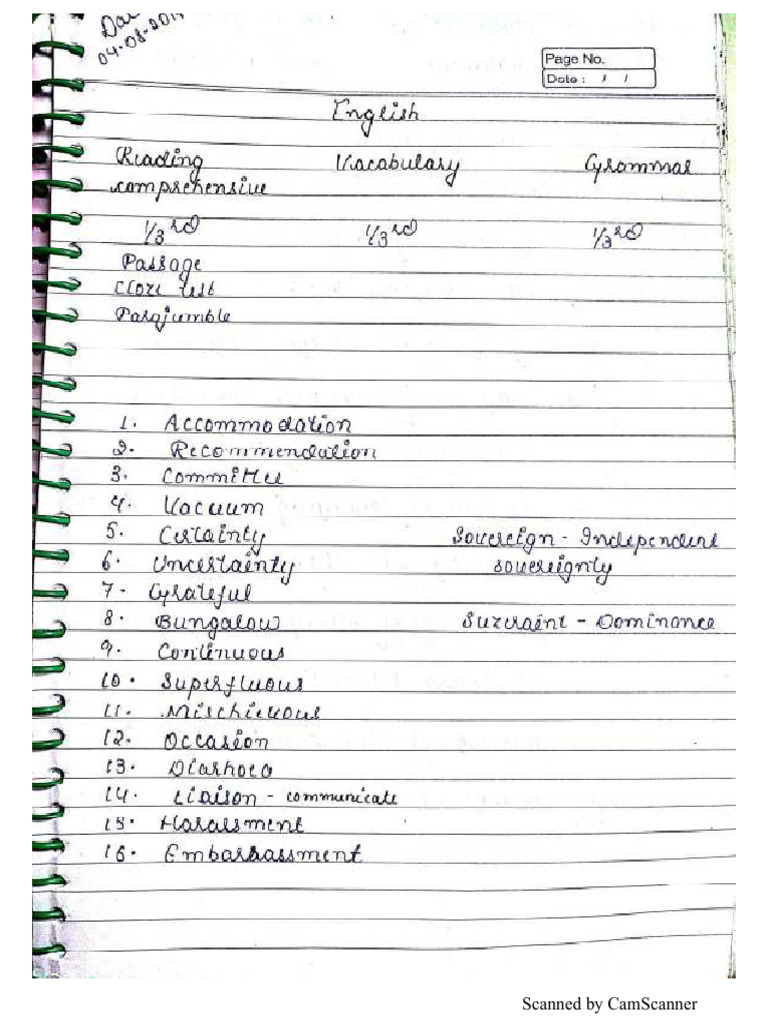 04-08-201
Page No.
Date : / /
English
Reading Vocabulary Grammar
comprehensive
1/3rd 1/3rd 1/3rd
Passage
Cloze test
Parajumble
1. Accommodation
2. Recommendation
3. Committee
4. Vacuum
5. Certainty Sovereign - Independent
6. Uncertainty sovereignty
7. Grateful
8. Bungalow Suzeraint - Dominance
9. Continuous
10. Superfluous
11. Mischievous
12. Occasion
13. Diarhoea
14. Liaison - communicate
15. Harassment
16. Embarrassment
Scanned by CamScanner